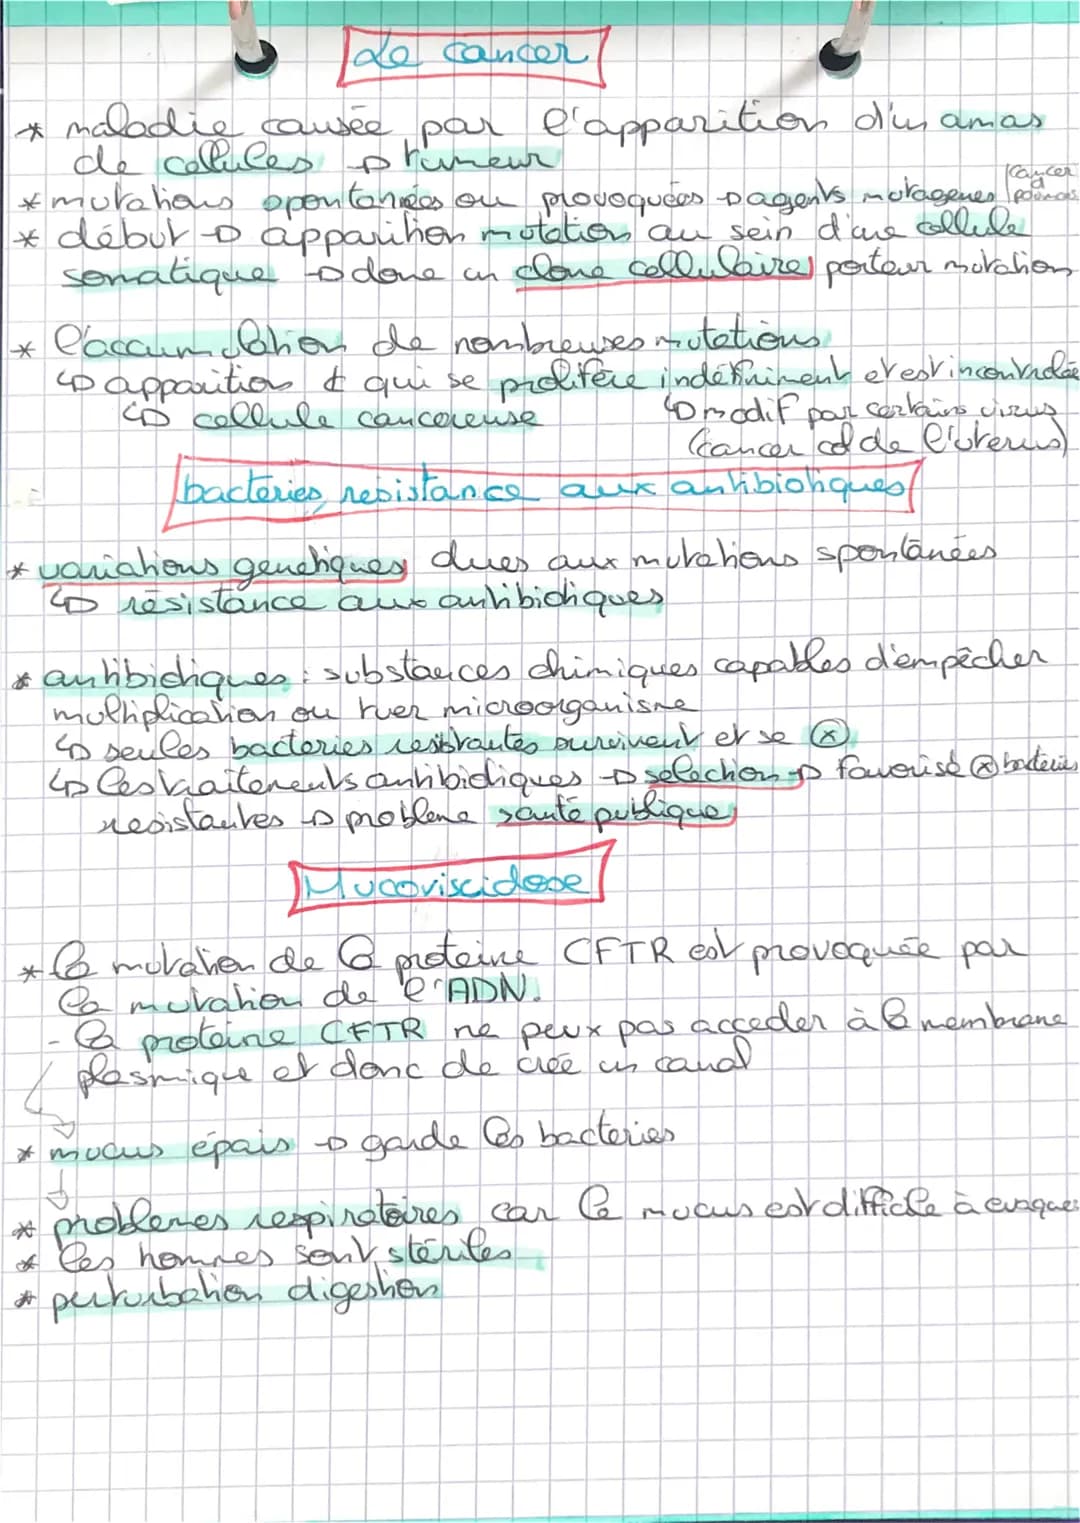 Le cancer
* maladie causée par l'apparition d'un amas
de cellules → tumeur
* mutations spontanées ou provoquées → agents mutagènes (cancer
* début → apparition mutation au sein d'une cellule
somatique → donne un clone cellulaire porteur mutation
* l'accumulation de nombreuses mutations
↳ apparition qui se prolifère indéfiniment et est incontrolée
↳ cellule cancereuse
↳ modif par certains virus
(cancer col de l'uterus)
bactéries, resistance aux antibiotiques
* variations genetiques dues aux mutations spontanées
↳ résistance aux antibiotiques
* antibiotiques : substances chimiques capables d'empêcher
multiplication ou tuer microorganisme
↳ seules bacteries resistantes survivent et se ⓧ
↳ les traitements antibiotiques → selection → favorise ⓧ bacteries
resistantes → probleme santé publique
Mucoviscidose
* la mutation de la proteine CFTR est provoquée par
la mutation de l'ADN.
- la proteine CFTR ne peux pas acceder à la membrane
plasmique et donc de crée un canal
* mucus épais → garde les bacteries
* problemes respiratoires car le mucus est difficile à evaquer
* les hommes sont stériles
* perturbation digestion